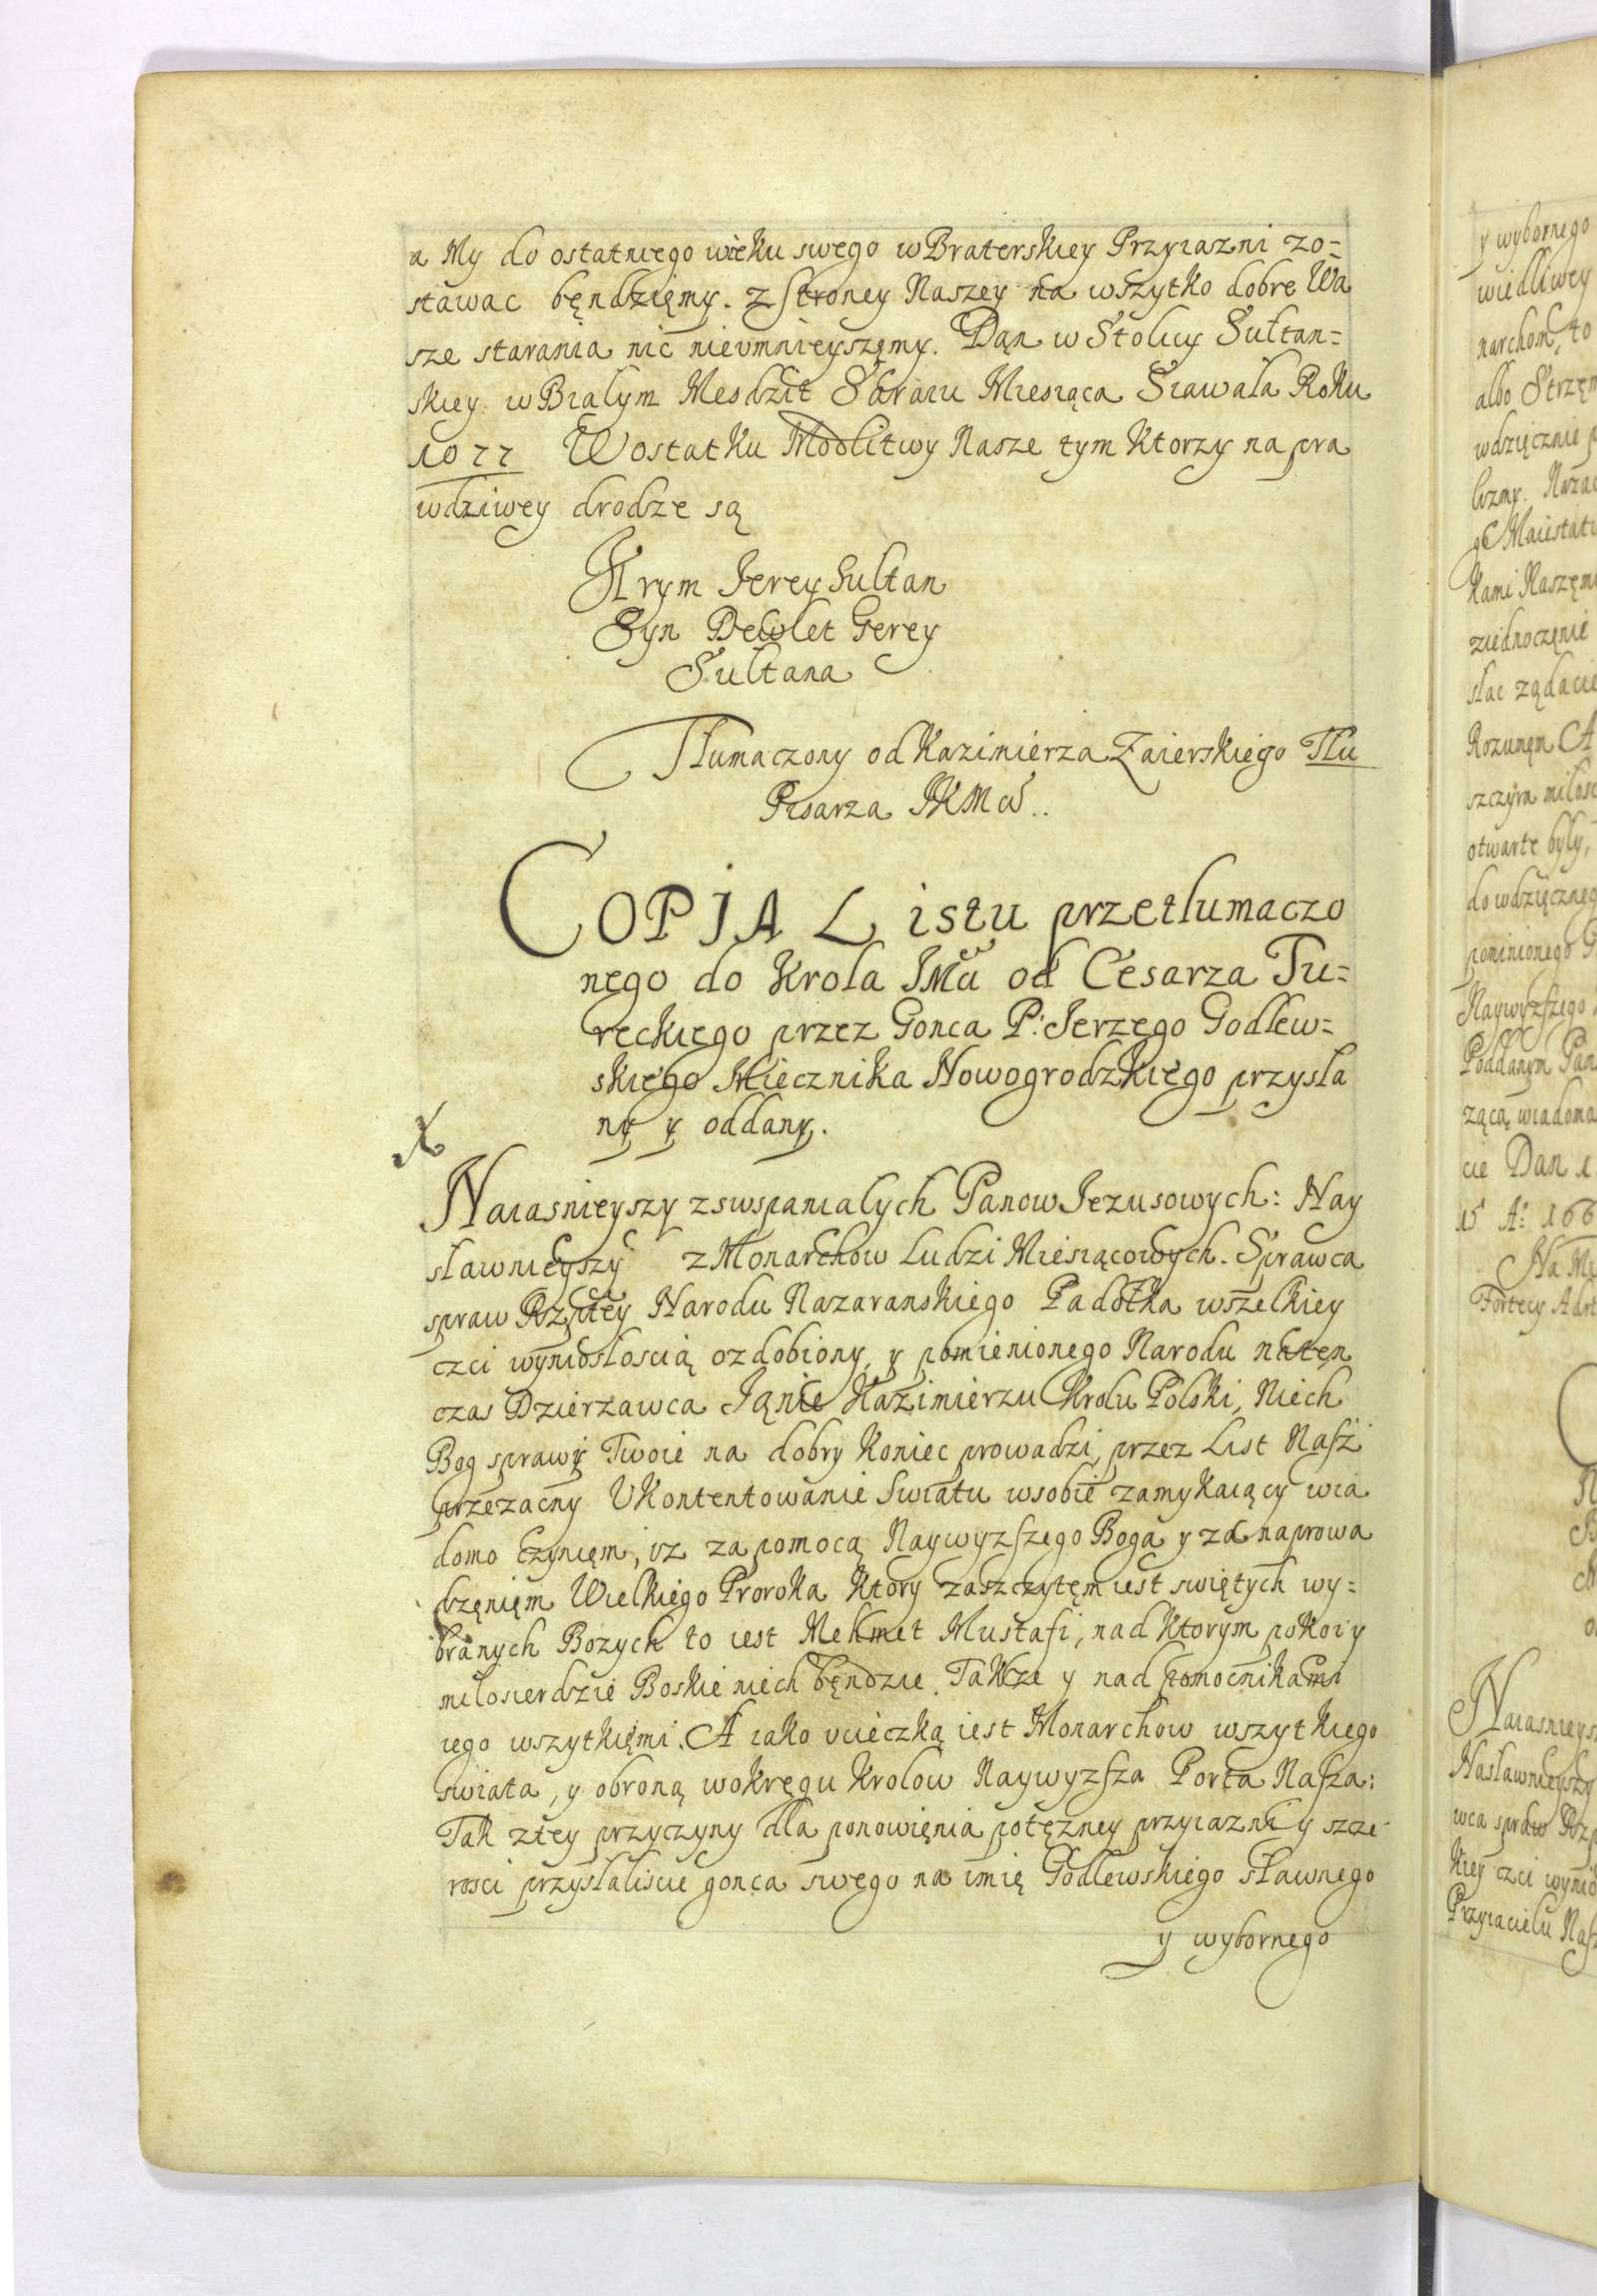 a My do ostatniego wieku swego w Braterskiey Przyiazni zo=
stawac będzięmy. z stroney Naszey na wszytko dobre Wa
sze starania nic nieumnieyszęmy. Dąn w Stolicy Sultan=
skiey w Bialym Mesdzit Saraiu Miesiąca Siawala Roku
1077 W ostatku Modlitwy Nasze tym ktorzy na pra
wdziwey drodze są
Krym Ierey Sultan
Syn Dewlet Gerey
Sultana
Tlumaczony od Kazimierza Zaierskiego Tlu
Pisarza JKMci..
COPJA Listu przetlumaczo
nego do Krola JMci od Cesarza Tu=
reckiego przez Gonca P: Jerzego Godlew=
skiego Miecznika Nowogrodzkiego przysla
ny y oddany.
X
Naiasnieyszy z swspanialych Panow Jezusowych: Nay
slawnieyszy z Monarchow Ludzi Miesiącowych. Sprawca
spraw Rzptey Narodu Nazaranskiego Padolka wszelkiey
czci wyniosloscią ozdobiony, y pomienionego Narodu naten
czas Dzierzawca Ianie Kazimierzu Krolu Polski, Niech
Bog sprawy Twoie na dobry koniec prowadzi, przez List Nasz
przezacny Ukontentowanie Swiatu w sobie zamykaiący wia
domo czynięm, iz za pomocą Naywyzszego Boga y za naprowa
dzęnięm Wielkiego Proroka ktory zaszczytęm iest swiętych wy=
branych Bozych to iest Mehmet Mustafi, nad ktorym pokoi y
milosierdzie Boskie niech będzie. Takze y nad pomocnikami
iego wszytkięmi. A iako ucieczką iest Monarchow wszytkiego
swiata, y obroną w okręgu krolow Naywyzsza Porta Nasza:
Tak z tey przyczyny dla ponowięnia potężney przyiazni y szcze
rosci przyslaliscie gonca swego na imię Godlewskiego slawnego
y wybornego
y wybornego
wiedliwey
narchom, to
albo Strzęm
wdzięcznie p
Kami Naszęm
ziednoczęnie
slac ządacie
Rozumęm A
szczyra milosc
otwarte byly,
do wdzięcznego
pominionego G
Naywyzszego
Poddanym Pan
zącą wiadoma
cie Dan w
15 Aº 166
Na Mi
Fortecy Adrt
Naiasnieys
Naslawnieyszy
wca spraw Rzp
kiey czci wynio
Przyiacielu Nasz